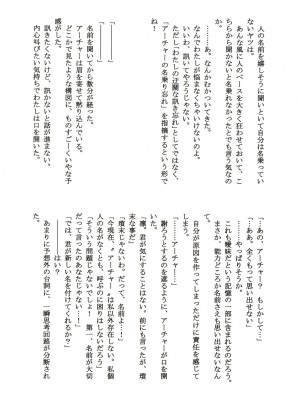 人の名前を嬉しそうに聞いて自分は名乗ってい
ないヤツは。
あんな風に人のペースを大きく狂わせておいて、
こちらから聞かないと名乗れなかったとでも言う気なの
だろうか。
………あ。なんかむかついてきた。
なんでわたしが訊かなくちゃいけないのよ。
ただ「わたしの迂闊な訊き忘れ」としてではなく、
「アーチャーの名乗り忘れ」を指摘するという形で
ね！
「――――――」
「――――――」
名前を聞いてから数分が経った。
アーチャーは眉を寄せて黙り込んでいる。
どこかで見たような構図に、ものすごーくいやな予
感がした。
訊きたくないけど、訊かないと話が進まない。
内心叫びたい気持ちでわたしは口を開いた。
「あの、アーチャー？　もしかして……」
「……ああ、全くもって思い出せない」
……あ、やっぱりそうか。
これも曖昧だという記憶の一部に含まれるのだろう。
まさか、能力どころか名前さえも思い出せないなん
て……
自分が原因を作ってしまっただけに責任を感じて
しまう。
「……アーチャー……」
謝ろうとするのを遮るように、アーチャーが口を開
いた。
「凛、君が気にすることはない。前にも言ったが、瑣
末な事だ」
「瑣末じゃないわ。だって、名前よ……！」
「今現在、〝アーチャー〟は私以外存在しない。私個
人の名がなくとも、呼ぶのに困りはしないだろう」
「そういう問題じゃないでしょ！　第一、名前が大切
だって言ったのあなたじゃない……！」
「では、君が新しい名を付けてくれるか？」
「――――――」
あまりに予想外の台詞に、一瞬思考回路が分断され